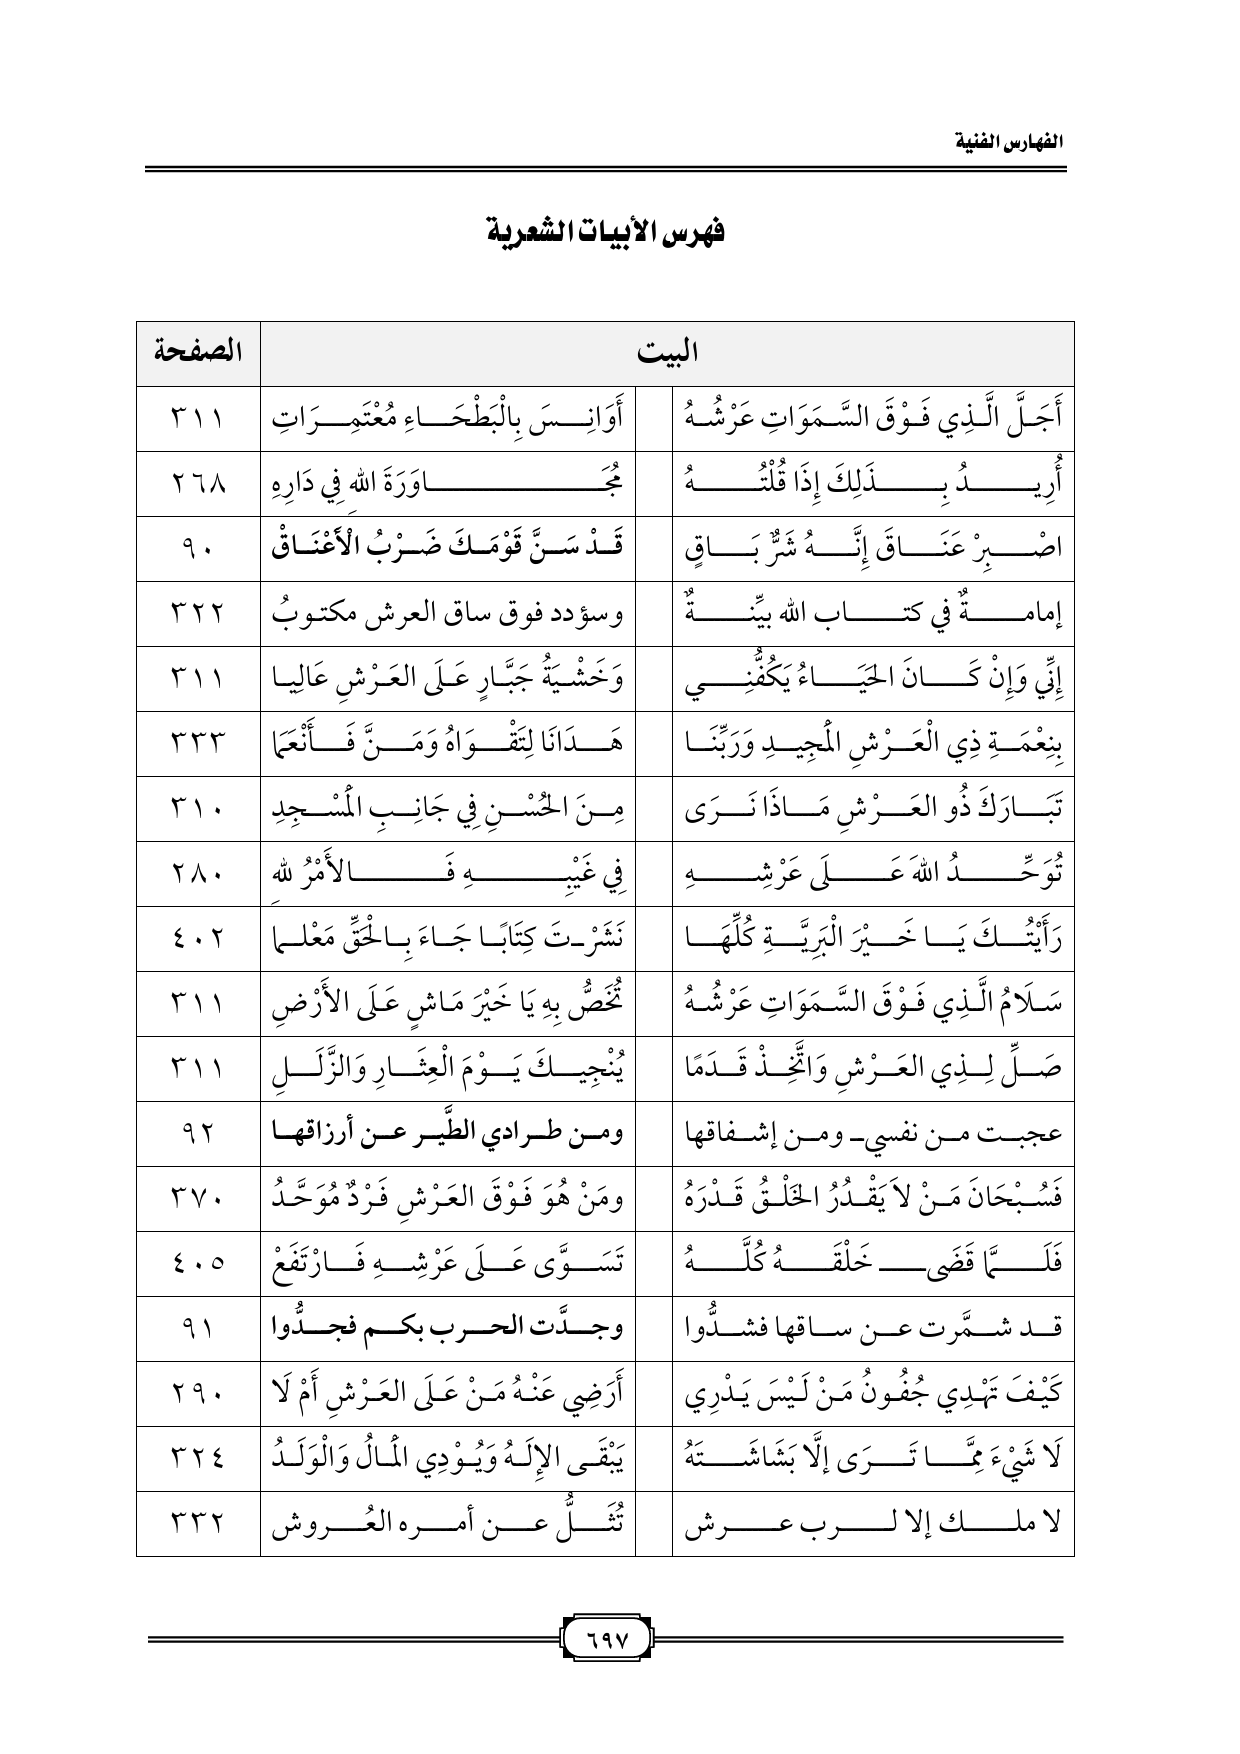 الفهارس الفنية
فهرس الأبيات الشعرية
البيت الصفحة
أَجَلَّ الَّذِي فَوْقَ السَّمَوَاتِ عَرْشُهُ أَوَانِسَ بِالْبَطْحَاءِ مُعْتَمِرَاتِ ٣١١
أُرِيدُ بِذَلِكَ إِذَا قُلْتُهُ مُجَاوَرَةَ اللهِ فِي دَارِهِ ٢٦٨
اصْبِرْ عَنَاقَ إِنَّهُ شَرٌّ بَاقٍ قَدْ سَنَّ قَوْمَكَ ضَرْبُ الْأَعْنَاقْ ٩٠
إمامةٌ في كتاب الله بيِّنةٌ وسؤدد فوق ساق العرش مكتوبُ ٣٢٢
إِنِّي وَإِنْ كَانَ الحَيَاءُ يَكُفُّنِي وَخَشْيَةُ جَبَّارٍ عَلَى العَرْشِ عَالِيا ٣١١
بِنِعْمَةِ ذِي الْعَرْشِ الْمَجِيدِ وَرَبِّنَا هَدَانَا لِتَقْوَاهُ وَمَنَّ فَأَنْعَمَا ٣٣٣
تَبَارَكَ ذُو العَرْشِ مَاذَا نَرَى مِنَ الحُسْنِ فِي جَانِبِ الْمَسْجِدِ ٣١٠
تُوَحِّدُ اللهَ عَلَى عَرْشِهِ فِي غَيْبِهِ فَالأَمْرُ للهِ ٢٨٠
رَأَيْتُكَ يَا خَيْرَ الْبَرِيَّةِ كُلِّهَا نَشَرْتَ كِتَابًا جَاءَ بِالْحَقِّ مَعْلما ٤٠٢
سَلَامُ الَّذِي فَوْقَ السَّمَوَاتِ عَرْشُهُ تُخَصُّ بِهِ يَا خَيْرَ مَاشٍ عَلَى الأَرْضِ ٣١١
صَلِّ لِذِي العَرْشِ وَاتَّخِذْ قَدَمًا يُنْجِيكَ يَوْمَ الْعِثَارِ وَالزَّلَلِ ٣١١
عجبت من نفسي ومن إشفاقها ومن طرادي الطَّير عن أرزاقها ٩٢
فَسُبْحَانَ مَنْ لاَ يَقْدُرُ الخَلْقُ قَدْرَهُ ومَنْ هُوَ فَوْقَ العَرْشِ فَرْدٌ مُوَحَّدُ ٣٧٠
فَلَمَّا قَضَى خَلْقَهُ كُلَّهُ تَسَوَّى عَلَى عَرْشِهِ فَارْتَفَعْ ٤٠٥
قد شمَّرت عن ساقها فشدُّوا وجدَّت الحرب بكم فجدُّوا ٩١
كَيْفَ تَهْدِي جُفُونُ مَنْ لَيْسَ يَدْرِي أَرَضِي عَنْهُ مَنْ عَلَى العَرْشِ أَمْ لَا ٢٩٠
لَا شَيْءَ مِمَّا تَرَى إلَّا بَشَاشَتَهُ يَبْقَى الإِلَهُ وَيُوْدِي الْمَالُ وَالْوَلَدُ ٣٢٤
لا ملك إلا لرب عرش تُثَلُّ عن أمره العُروش ٣٣٢
٦٩٧